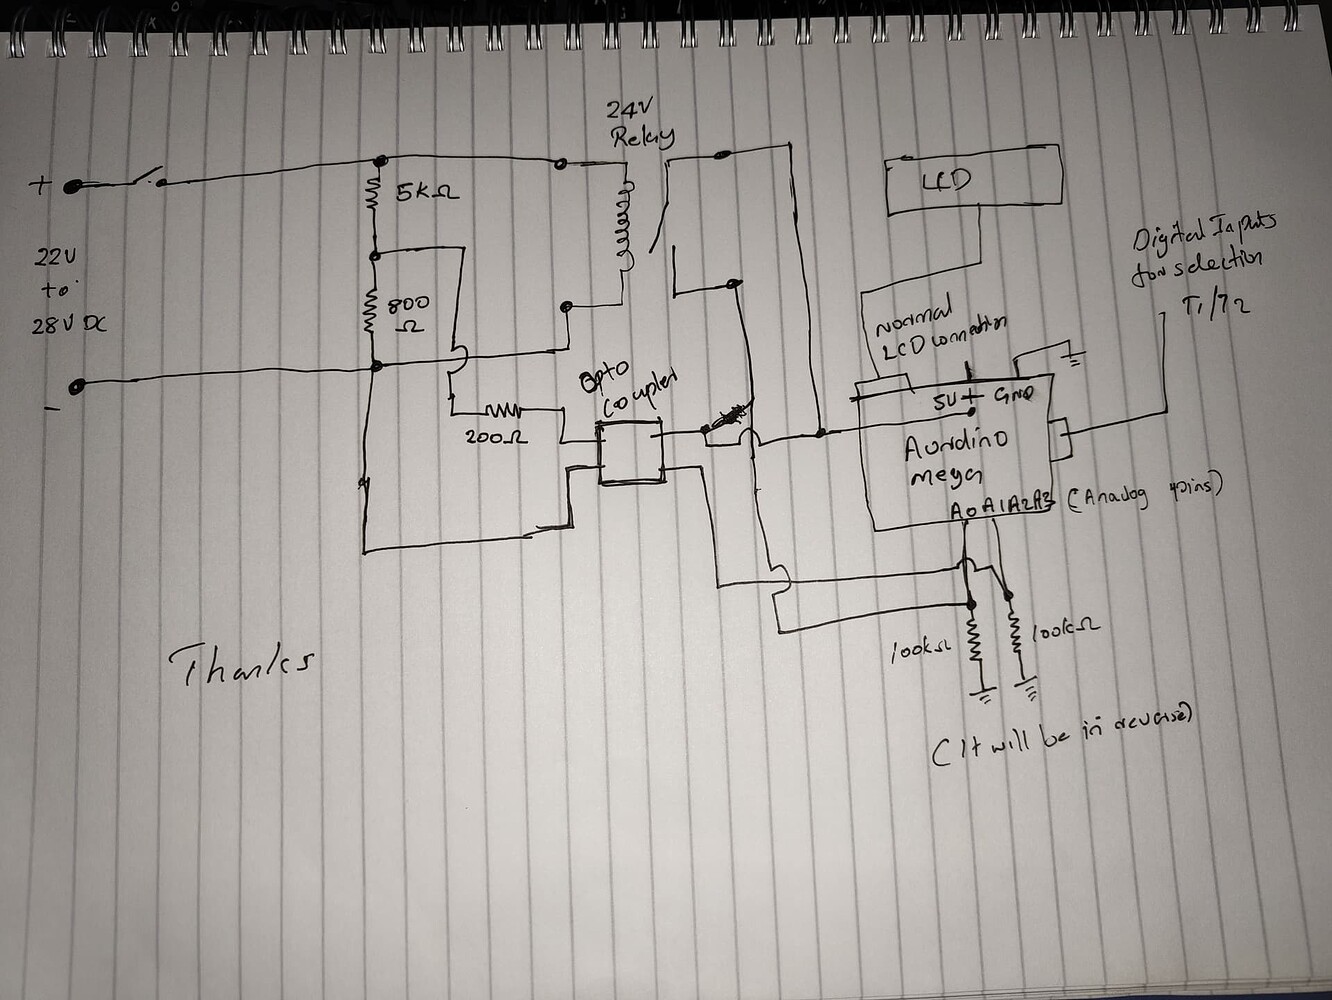 24V
Relay
+
5kΩ
LCD
Digital Inputs
for selection
T1/T2
22V
to
28V DC
800
Ω
Normal
LCD connection
-
Opto
Coupler
5V
GND
200Ω
Aurdino
mega
A0 A1 A2 A3
(Analog pins)
Thanks
100kΩ
100kΩ
(It will be in reverse)